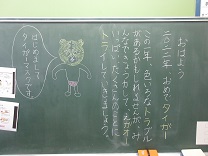 おはよう
二〇二二年、おめでタイガー
この一年、色いろなトラブル
があるかもしれませんが、み
んなできょうカし
いっぱい、たくさんのことに
トライしていきましょう。
はじめまして
タイガーマスクです。